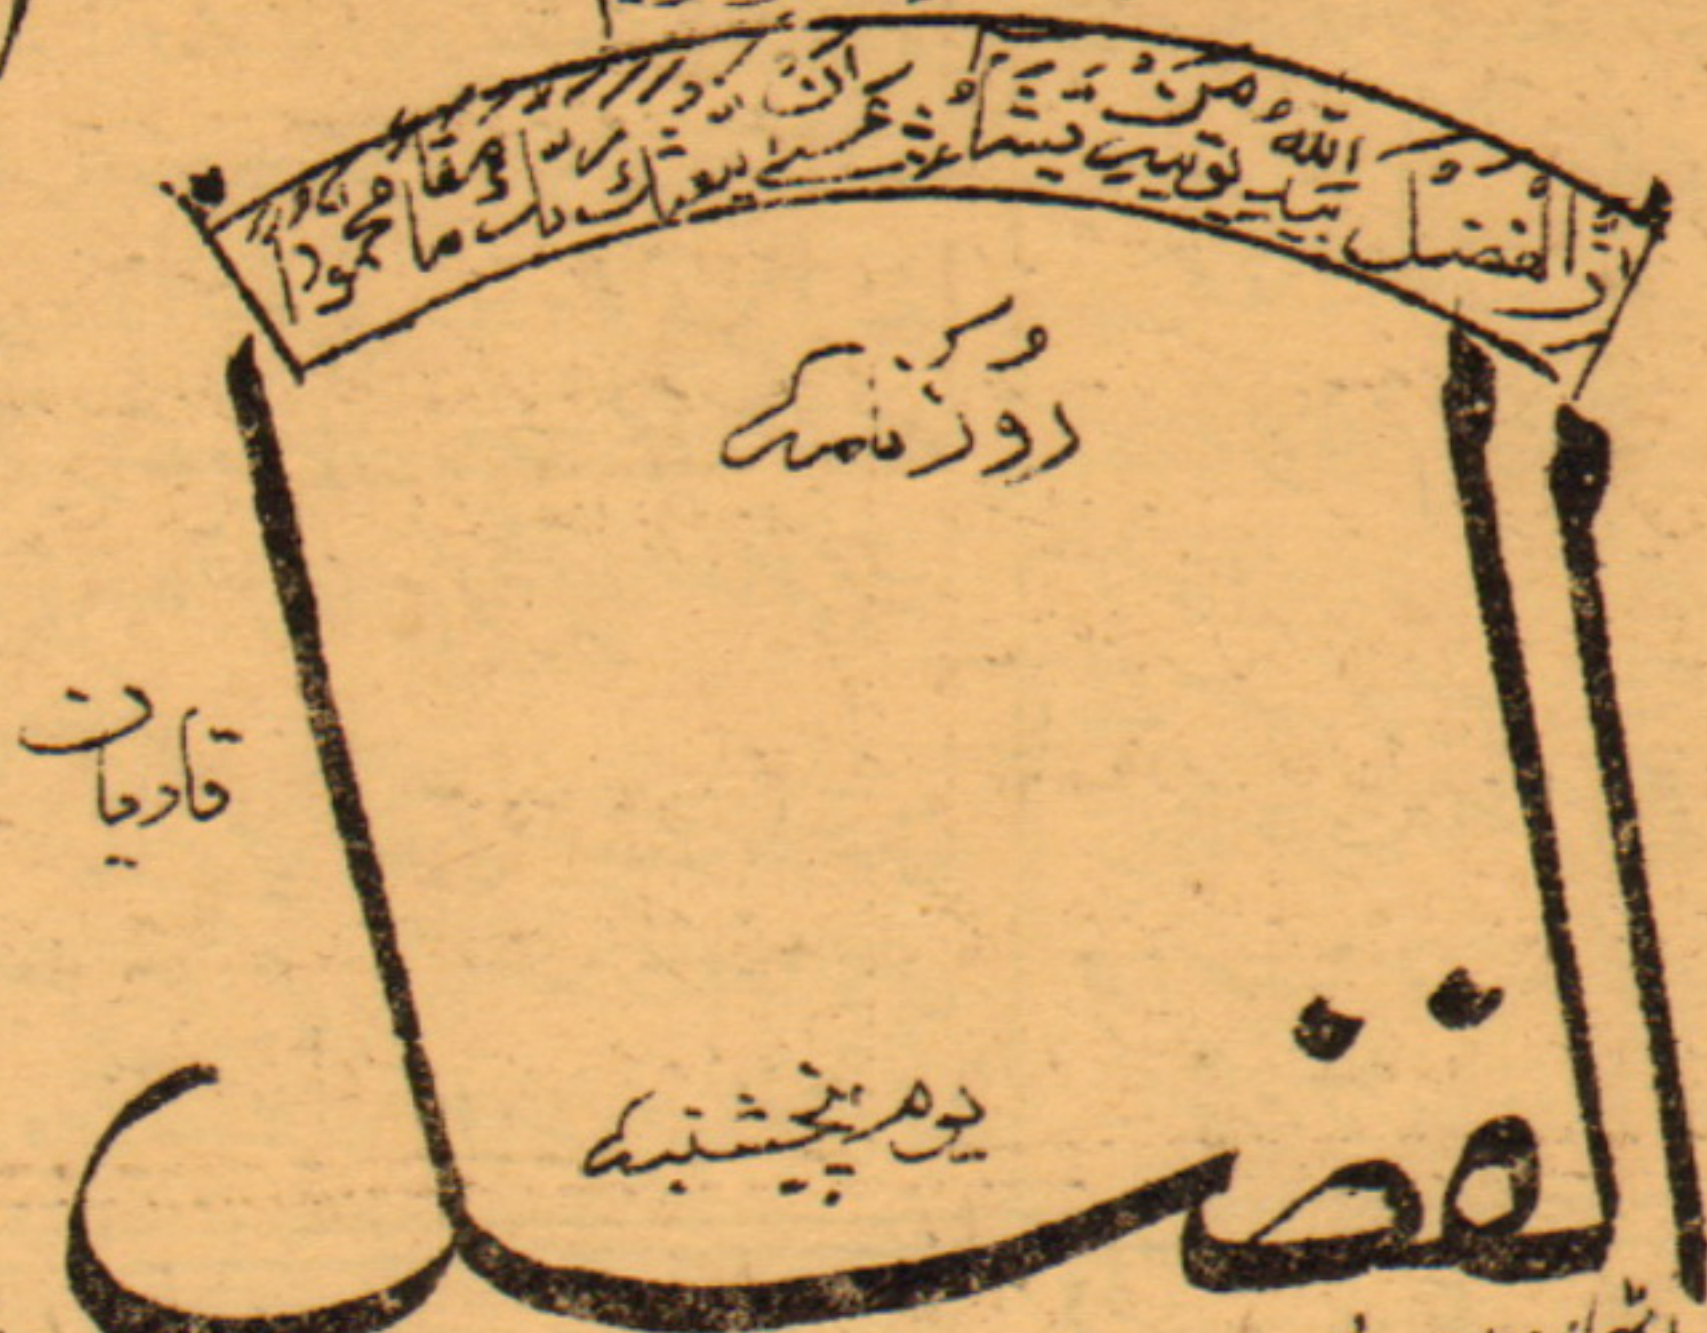 اِنَّ الْفَضْلَ بِيَدِ اللّٰهِ يُؤْتِيْهِ مَنْ يَّشَآءُ عَسٰى اَنْ يَّبْعَثَكَ رَبُّكَ مَقَامًا مَّحْمُوْدًا
روزنامہ
قادیان
یوم پنجشنبہ
الفضل